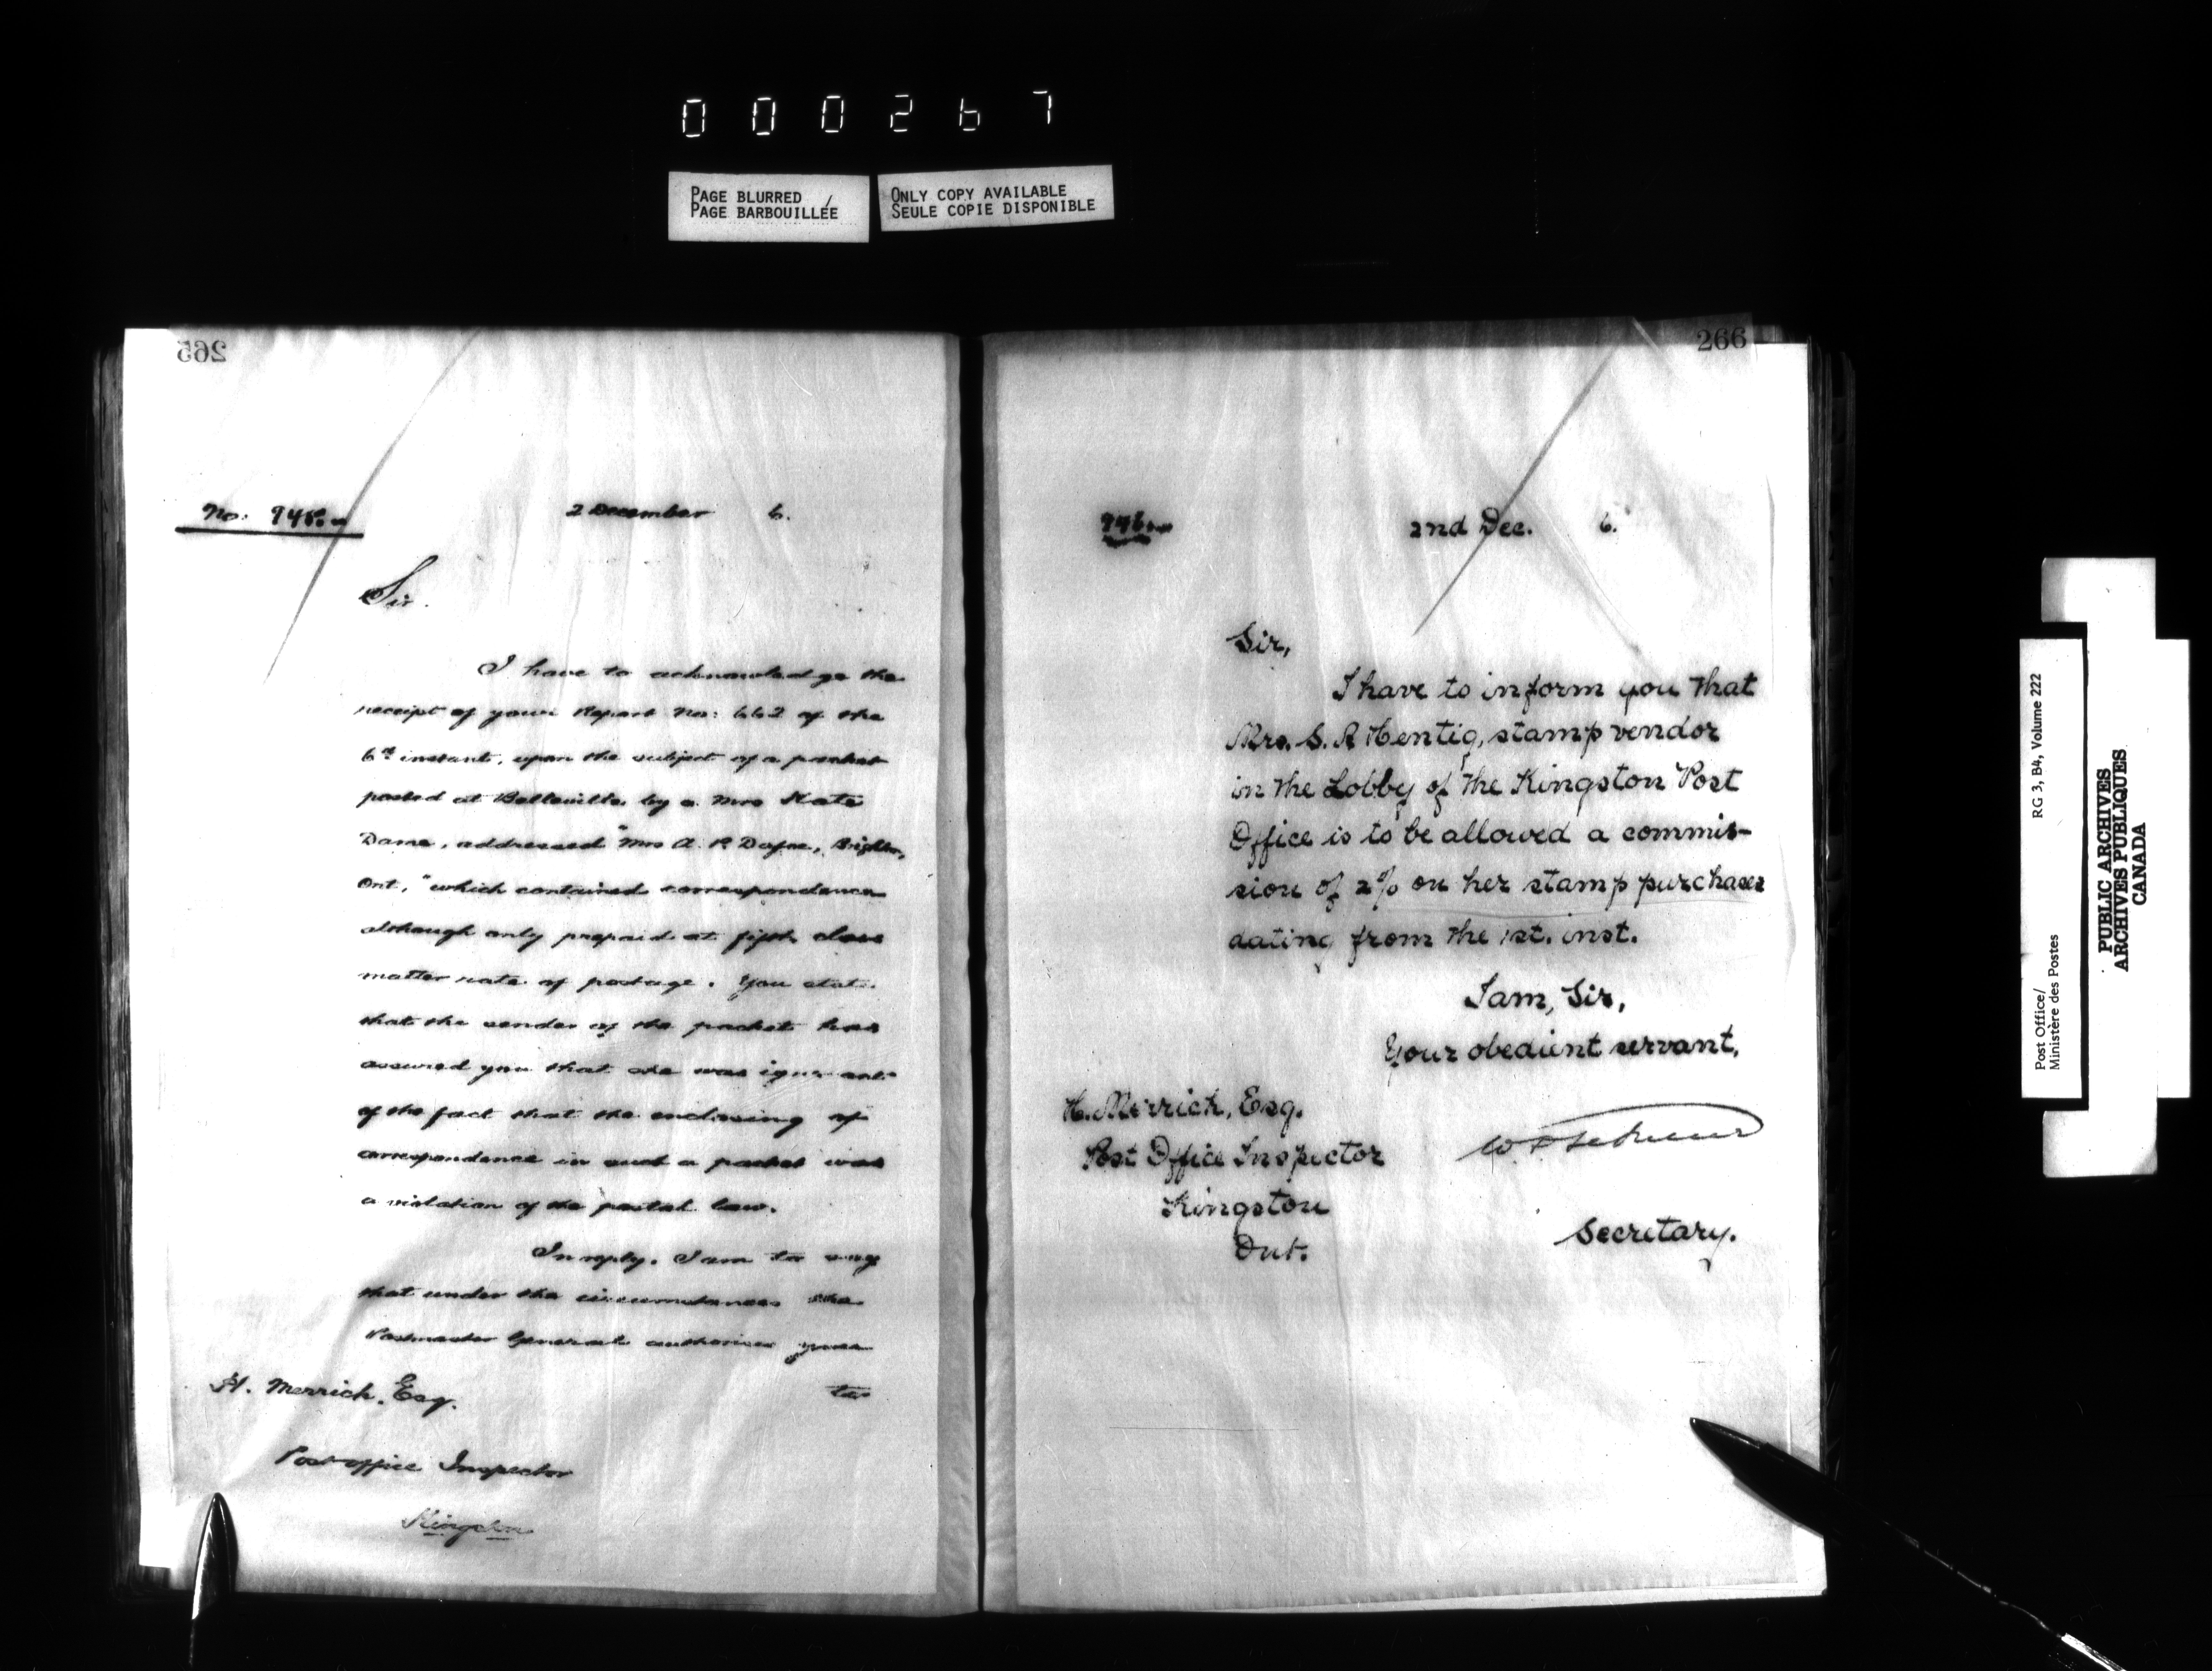 000267
PAGE BLURRED
PAGE BARBOUILLÉE
ONLY COPY AVAILABLE
SEULE COPIE DISPONIBLE
265
No.
2 December 6.
Sir.
I have to acknowledge the
receipt of your Report No: 662 of the
6th instant, upon the subject of a packet
posted at Belleville, by a Mrs Kate
Dame, addressed "Mrs A. P. Brighton,
Ont," which contained correspondence
although only prepaid at fifth class
matter rate of postage. You state
that the sender of the packet has
assured you that she was ignorant
of the fact that the enclosing of
correspondence in such a packet was
a violation of the postal law.
In reply, I am to say
that under the circumstances the
Postmaster General authorises you
to
H. Merrick, Esq.
Post office Inspector
Kingston
266
2nd Dec. 6.
Sir,
I have to inform you that
Mrs. S. A Hentig, stamp vendor
in the Lobby of the Kingston Post
Office is to be allowed a commis-
sion of 2% on her stamp purchases
dating from the 1st. inst.
I am, Sir,
Your obedient servant,
H. Merrick, Esq.
Post Office Inspector
Kingston
Ont.
Secretary.
Post Office/
Ministère des Postes
RG 3, B4, Volume 222
PUBLIC ARCHIVES
ARCHIVES PUBLIQUES
CANADA